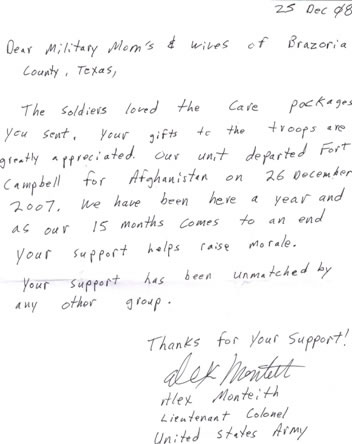 25 Dec 08
Dear Military Mom's & Wives of Brazoria
County, Texas,
The soldiers loved the care packages
you sent. Your gifts to the troops are
greatly appreciated. Our unit departed Fort
Campbell for Afghanistan on 26 December
2007. We have been here a year and
as our 15 months comes to an end
your support helps raise morale.
Your support has been unmatched by
any other group.
Thanks for your Support!
Alex Monteith
Alex Monteith
Lieutenant Colonel
United States Army